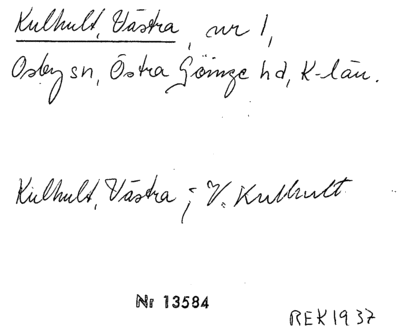 Kulhult, Västra, nr 1,
Osby sn, Östra Göinge hd, K-län.
Kulhult, Västra ; V. Kulhult
Nr 13584
REK 1937